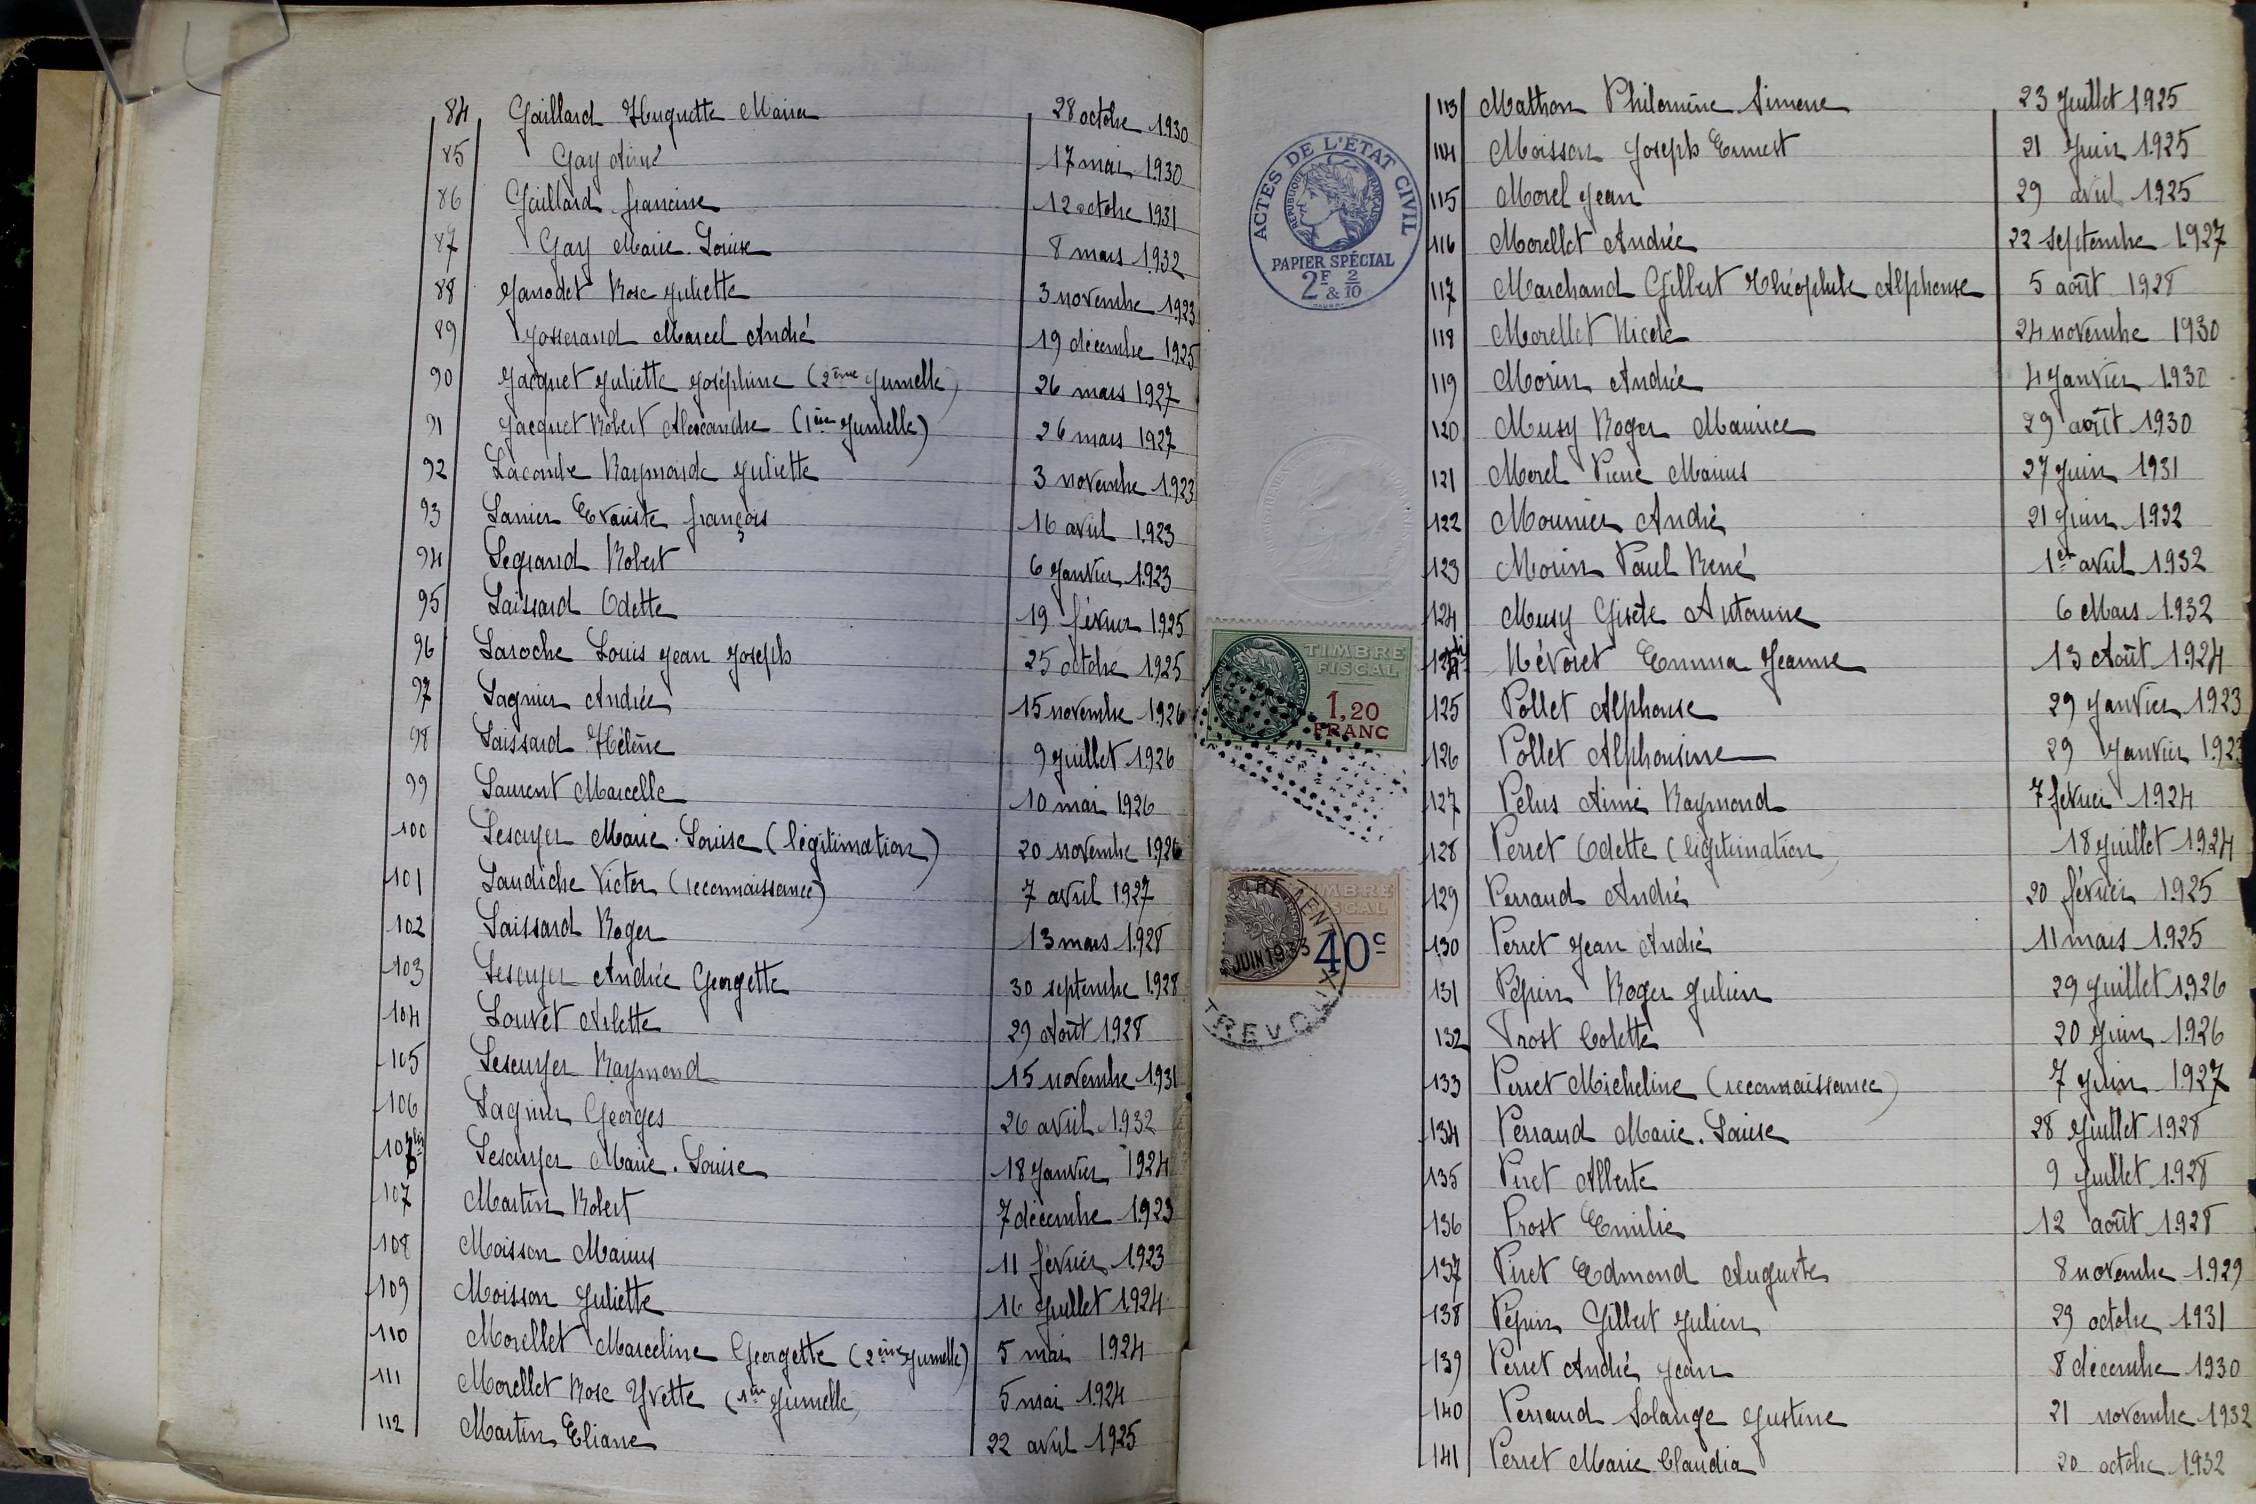 84 Gaillard Huguette Maria 28 octobre 1930
85 Gay Aimé 17 mai 1930
86 Gaillard francine 12 octobre 1931
87 Gay Marie-Louise 8 mars 1932
88 Janodet Rose Juliette 3 novembre 1923
89 Josserand Marcel André 19 décembre 1925
90 Jacquet Juliette Joséphine (2ème Jumelle) 26 mars 1927
91 Jacquet Robert Alexandre (1ère Jumelle) 26 mars 1927
92 Lacombe Raymonde Juliette 3 novembre 1923
93 Lanier Evariste françois 16 avril 1923
94 Legrand Robert 6 Janvier 1923
95 Laissard Odette 19 février 1925
96 Laroche Louis Jean Joseph 25 octobre 1925
97 Lagnier Andrée 15 novembre 1926
98 Laissard Hélène 9 juillet 1926
99 Laurent Marcelle 10 mai 1926
100 Lescuyer Marie-Louise (légitimation) 20 novembre 1926
101 Laudiche Victor (reconnaissance) 7 avril 1927
102 Laissard Roger 13 mars 1928
103 Lescuyer Andrée Georgette 30 septembre 1928
104 Louvet Arlette 29 Août 1928
105 Lescuyer Raymond 15 novembre 1931
106 Lagnier Georges 26 avril 1932
106 bis Lescuyer Marie-Louise 18 Janvier 1924
107 Martin Robert 7 décembre 1923
108 Moisson Marius 11 février 1923
109 Moisson Juliette 16 Juillet 1924
110 Morellet Marceline Georgette (2ème Jumelle) 5 mai 1924
111 Morellet Rose Yvette (1ère Jumelle) 5 mai 1924
112 Martin Eliane 22 avril 1925
ACTES DE L'ÉTAT CIVIL
RÉPUBLIQUE FRANÇAISE
PAPIER SPÉCIAL
2F & 2/10
TIMBRE
FISCAL
1,20
FRANC
TIMBRE
FISCAL
40c
JUIN 1933
TREVOUX
113 Mathon Philomène Simone 23 Juillet 1925
114 Moisson Joseph Ernest 21 Juin 1925
115 Morel Jean 29 avril 1925
116 Morellet Andrée 22 septembre 1927
117 Marchand Gilbert Théophile Alphonse 5 août 1928
118 Morellet Nicole 24 novembre 1930
119 Morin Andrée 4 Janvier 1930
120 Musy Roger Maurice 29 août 1930
121 Morel Pierre Marius 27 Juin 1931
122 Mounier André 21 Juin 1932
123 Morin Paul René 1er avril 1932
124 Musy Gisèle Antonine 6 Mars 1932
124 bis Névoret Emma Jeanne 13 Août 1924
125 Pollet Alphonse 29 Janvier 1923
126 Pollet Alphonsine 29 Janvier 1923
127 Pelus Aimé Raymond 7 février 1924
128 Perret Odette (légitimation) 18 Juillet 1924
129 Perraud André 20 février 1925
130 Perret Jean André 11 mars 1925
131 Pépin Roger Julien 29 Juillet 1926
132 Prost Colette 20 Juin 1926
133 Perret Micheline (reconnaissance) 7 Juin 1927
134 Perraud Marie-Louise 28 Juillet 1928
135 Piret Alberte 9 Juillet 1928
136 Prost Emilie 12 août 1928
137 Piret Edmond Auguste 8 novembre 1929
138 Pépin Gilbert Julien 29 octobre 1931
139 Perret André Jean 8 décembre 1930
140 Perraud Solange Justine 21 novembre 1932
141 Perret Marie Claudia 20 octobre 1932